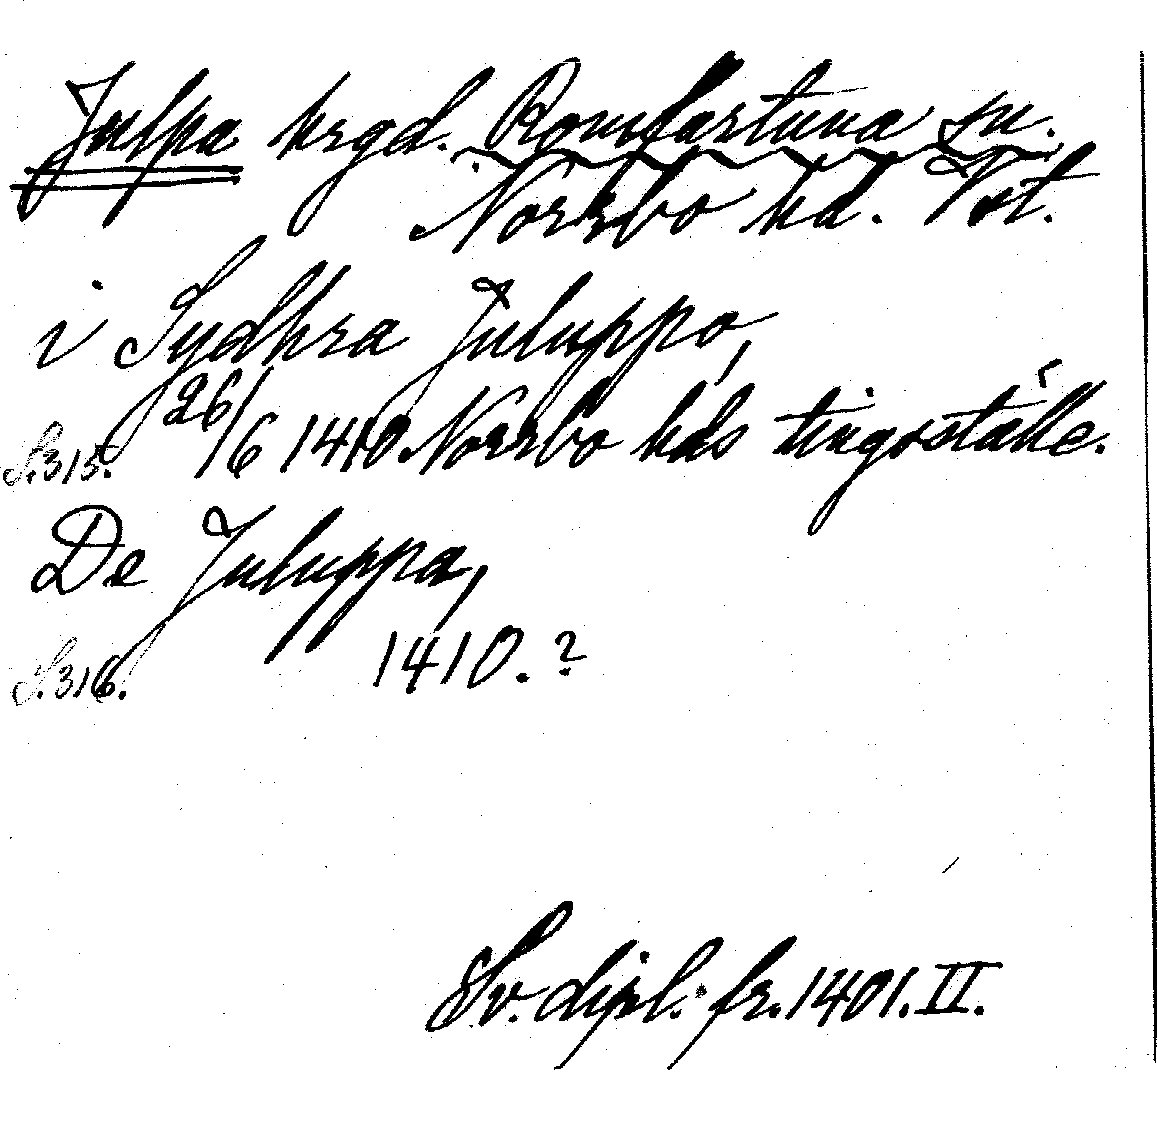 Julpa hrgd. Romfartuna sn.
Norrbo hd. Vst.
i Sydhra Juluppo,
S.315. 26/6 1410. Norrbo hds tingsställe.
De Juluppa,
S.316. 1410.?
Sv. dipl. fr. 1401. II.